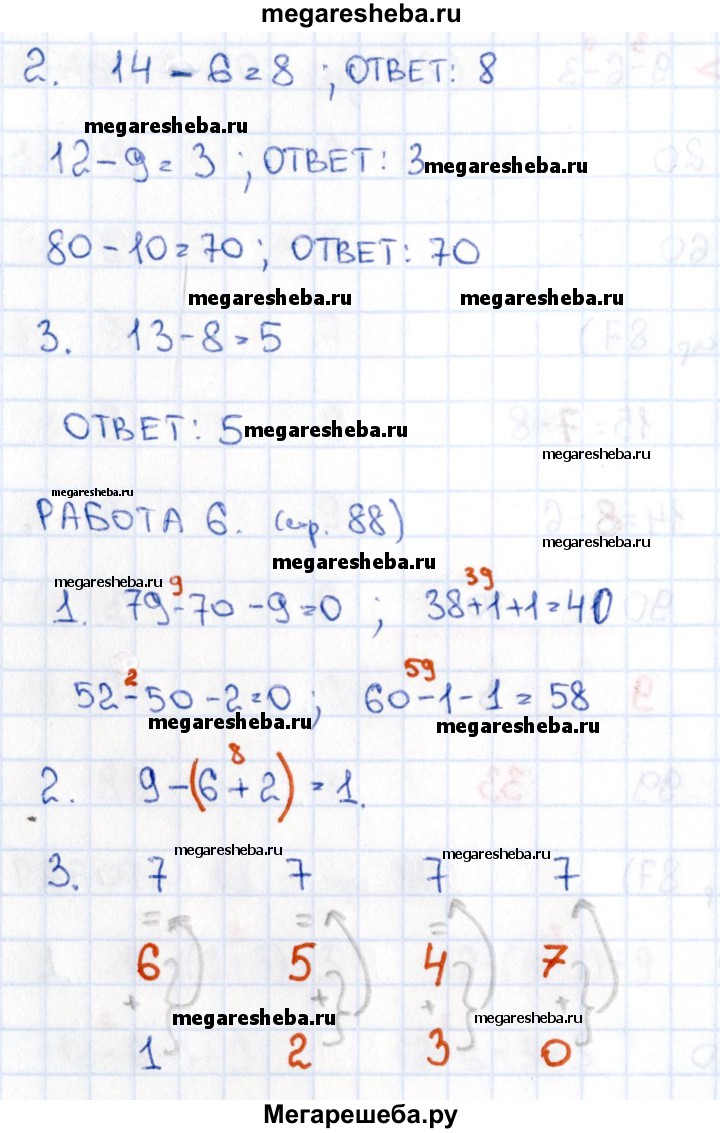 megaresheba.ru
2. 14 - 6 = 8 ; ОТВЕТ: 8
megaresheba.ru
12 - 9 = 3 ; ОТВЕТ: 3 megaresheba.ru
80 - 10 = 70 ; ОТВЕТ: 70
megaresheba.ru megaresheba.ru
3. 13 - 8 = 5
ОТВЕТ: 5 megaresheba.ru
megaresheba.ru
megaresheba.ru
РАБОТА 6. (стр. 88)
megaresheba.ru
megaresheba.ru
megaresheba.ru 9 39
1. 79 - 70 - 9 = 0 ; 38 + 1 + 1 = 40
2 59
52 - 50 - 2 = 0 ; 60 - 1 - 1 = 58
megaresheba.ru megaresheba.ru
8
2. 9 - (6 + 2) = 1.
megaresheba.ru megaresheba.ru
3. 7 7 7 7
= = =
6 5 4 7
+ + + +
megaresheba.ru megaresheba.ru
1 2 3 0
Мегарешеба.ру